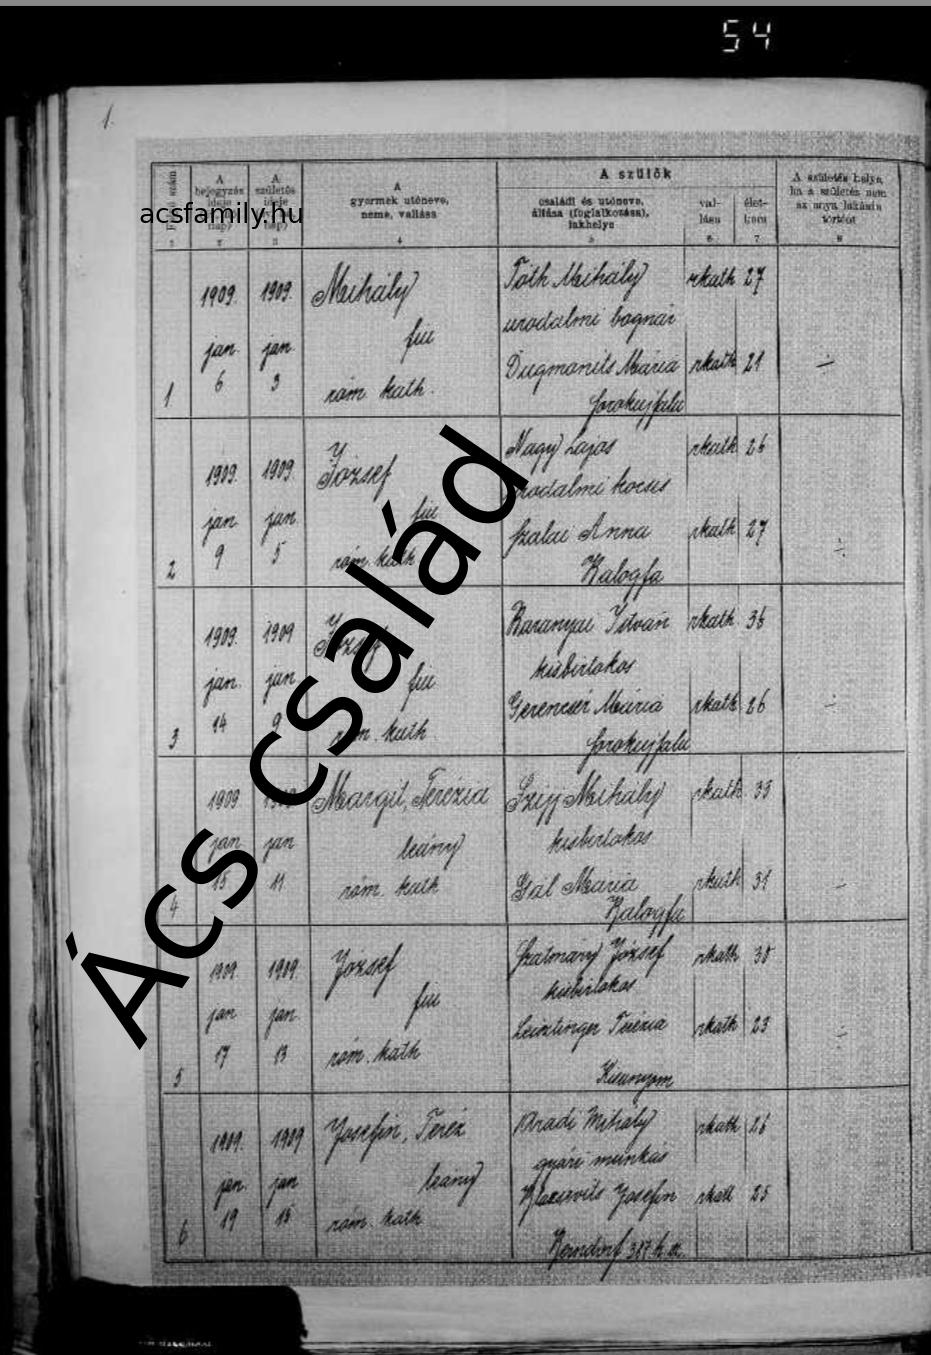 54
1.
A szülők
A
bejegyzés
ideje
A
születés
ideje
A
gyermek utóneve,
neme, vallása
családi és utóneve,
állása (foglalkozása),
lakhelye
val-
lása
élet-
kora
A születés helye,
ha a születés nem
az anya lakásán
történt
2 3 4 5 6 7 8
acsfamily.hu
Tóth Mihály rkath 27
1909. 1909. Mihály
uradalmi bognár
fiu
jan. jan.
rkath 21
6 3
róm. kath.
1 Sorokujfalu
Nagy Lajos rkath 26
1909. 1909. József
uradalmi kocsis
jan jan fiu
Szalai Anna rkath 27
9 5 róm. kath
2 Balogfa
Baranyai István rkath 36
1909. 1909 József
kisbirtokos
jan. jan fiu
Gerencsér Mária rkath 26
14 9 róm. kath.
3 Sorokujfalu
1909 1909 Margit, Terézia Mihály rkath
kisbirtokos
jan jan leány
15 11 róm. kath Gál Mária rkath 31
4 Balogfa
Szatmáry József rkath 30
1909. 1909. József
kisbirtokos
jan jan. fiu
Terézia rkath 23
17 13 róm. kath
5 Kisunyom
Aradi Mihály rkath 26
1909. 1909 Josefin, Teréz
gyári munkás
jan. jan leány
Josefin rkath 25
19 15 róm. kath
6 Berndorf 387 h. sz.
Ács család